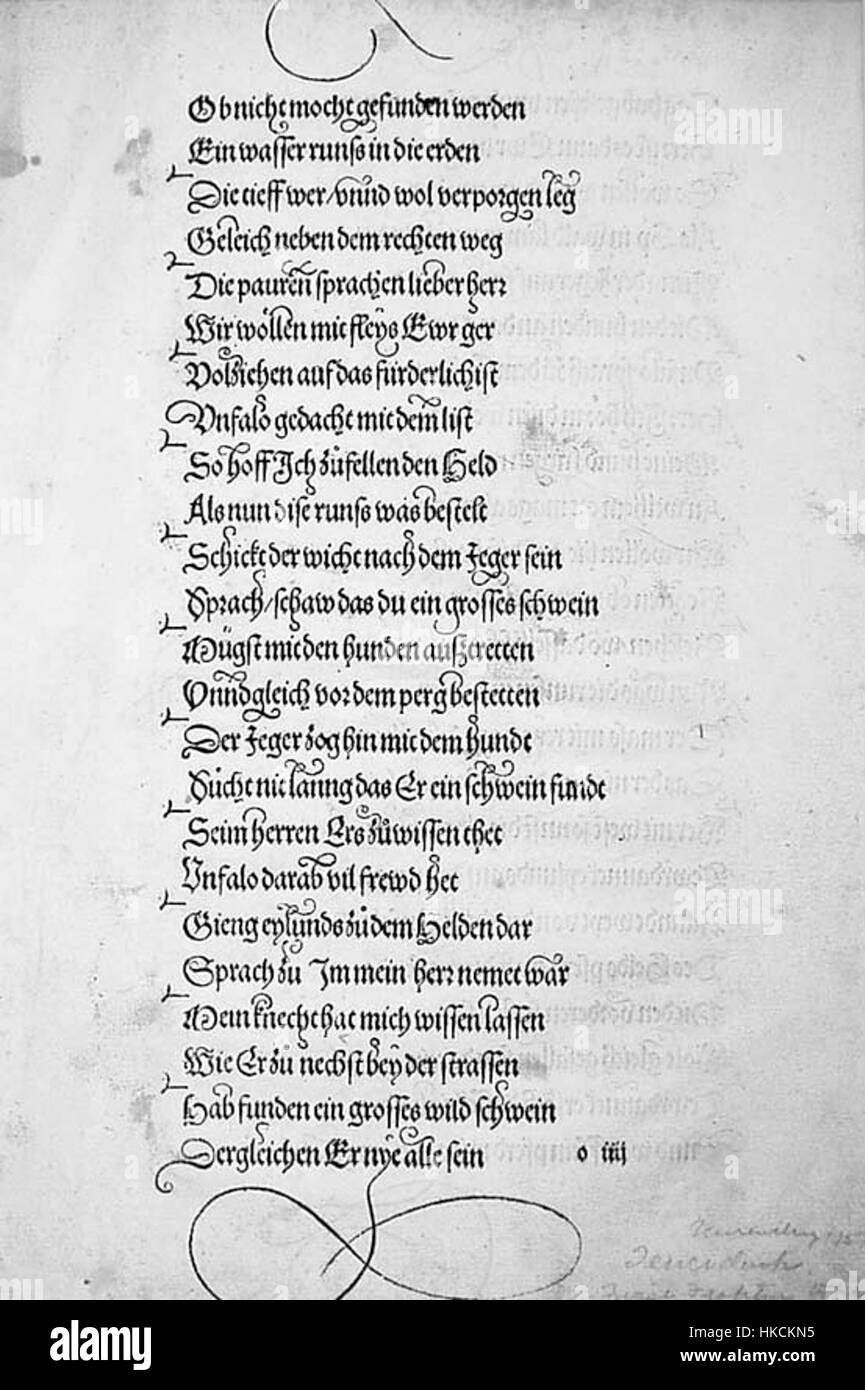 Ob nicht mocht gefunden werden
Ein wasser runſs in die erden
Die tieff wer/vnnd wol verporgen leg
Geleich neben dem rechten weg
Die pauren ſprachen lieber herr
Wir wöllen mit fleyſs Ewr ger
Volziehen auf das fürderlich iſt
Vnfalo gedacht mit dem liſt
So hoff Ich zůfellen den Held
Als nun diſe runſs was beſtelt
Schickt der wicht nach dem Jeger ſein
Sprach/ſchaw das du ein groſſes ſchwein
Mügſt mit den hunden auſztretten
Vnnd gleich vor dem perg beſtetten
Der Jeger zog hin mit dem hundt
Sůcht nit lanng das Er ein ſchwein fundt
Seim herren Ers zůwiſſen thet
Vnfalo darab vil frewd het
Gieng eylunds zů dem Helden dar
Sprach zů Im mein herr nemet war
Mein knecht hat mich wiſſen laſſen
Wie Er zů nechſt bey der ſtraſſen
Hab funden ein groſſes wild ſchwein
Dergleichen Er nye alle ſein o iiij
alamy
Image ID: HKCKN5
www.alamy.com